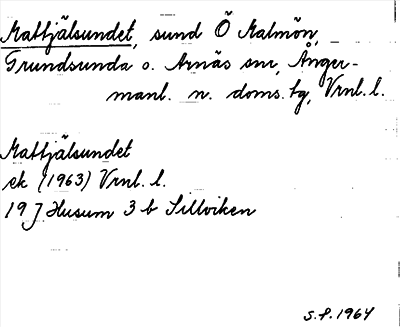 Mattjälsundet, sund Ö Malmön,
Grundsunda o. Arnäs snr, Ånger-
manl. n. doms. tg, Vrnl. l.
Mattjälsundet
ek (1963) Vrnl. l.
19 J Husum 3 b Sillviken
S.F. 1964